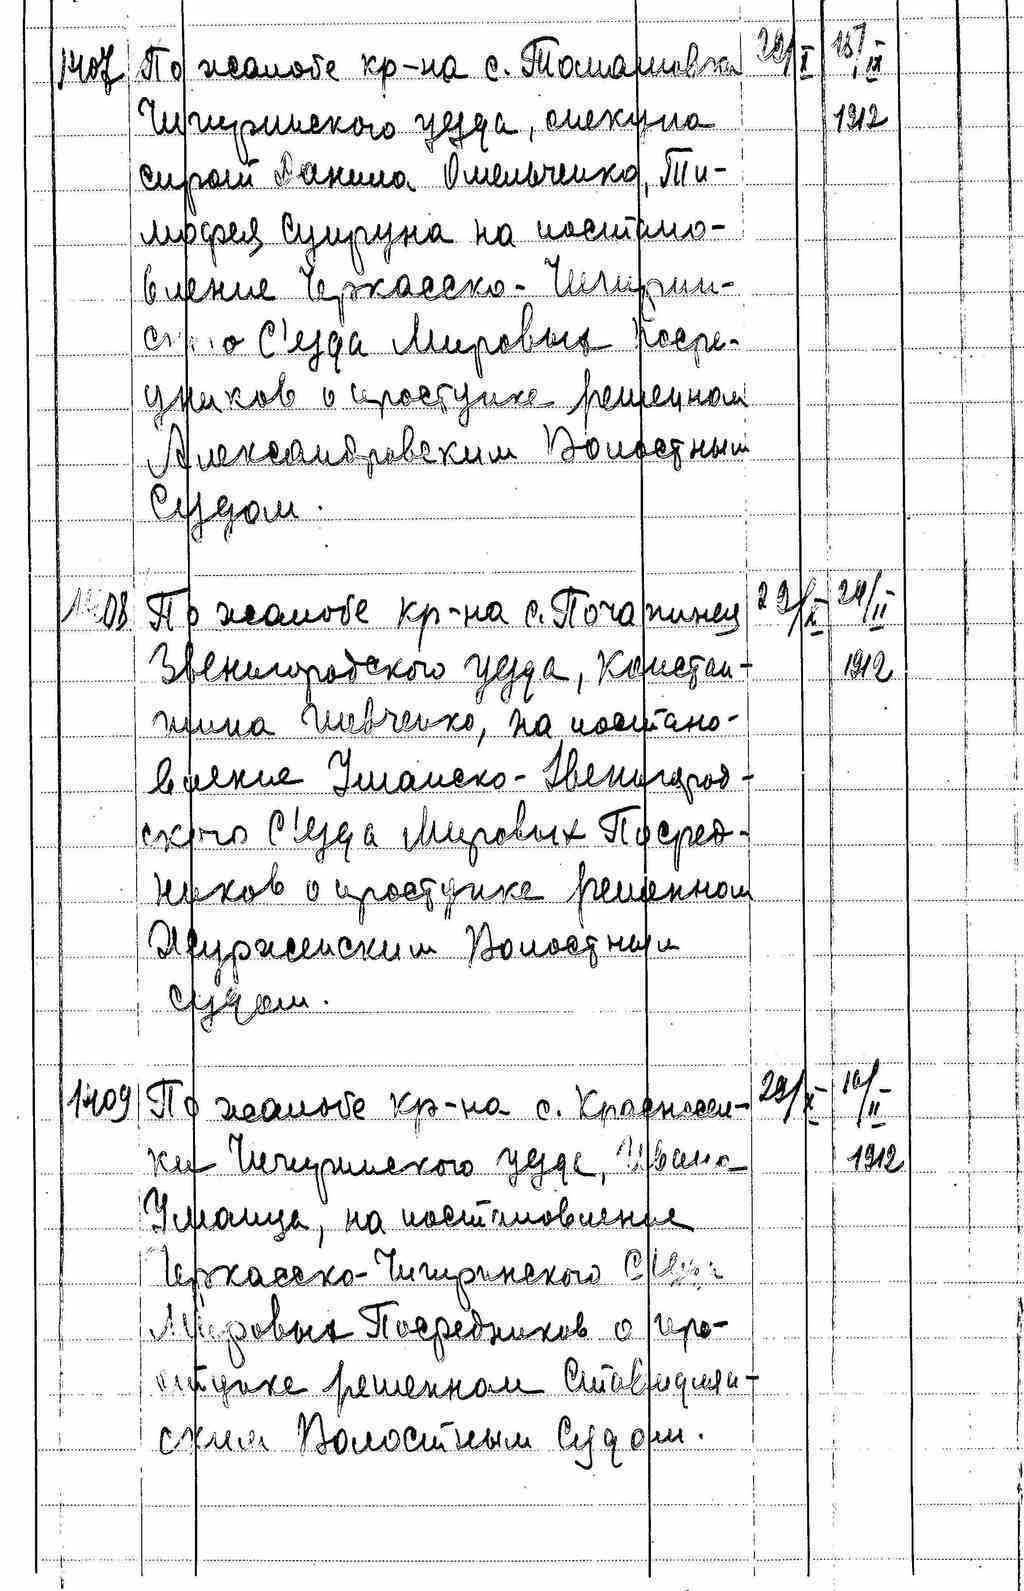 1407 По жалобе кр-на с. Томашовка 29/X 15/III
Чигиринского уезда, опекуна 1912
сирот Данила Омельченко, Ти-
мофея Супруна на постано-
вление Черкасско-Чигирин-
ского С'езда Мировых Посре-
дников о проступке решенном
Александровским Волостным
Судом.
1408 По жалобе кр-на с. Почапинец 29/X 24/II
Звенигородского уезда, Констан- 1912
тина Шевченко, на постано-
вление Уманско-Звенигород-
ского С'езда Мировых Посред-
ников о проступке решенном
Журженским Волостным
судом.
1409 По жалобе кр-на с. Красносел- 29/X 10/II
ки Чигиринского уезда, Ивана 1912
Уманца, на постановление
Черкасско-Чигиринского С'езда
Мировых Посредников о про-
ступке решенном Ставидлян-
ским Волостным Судом.